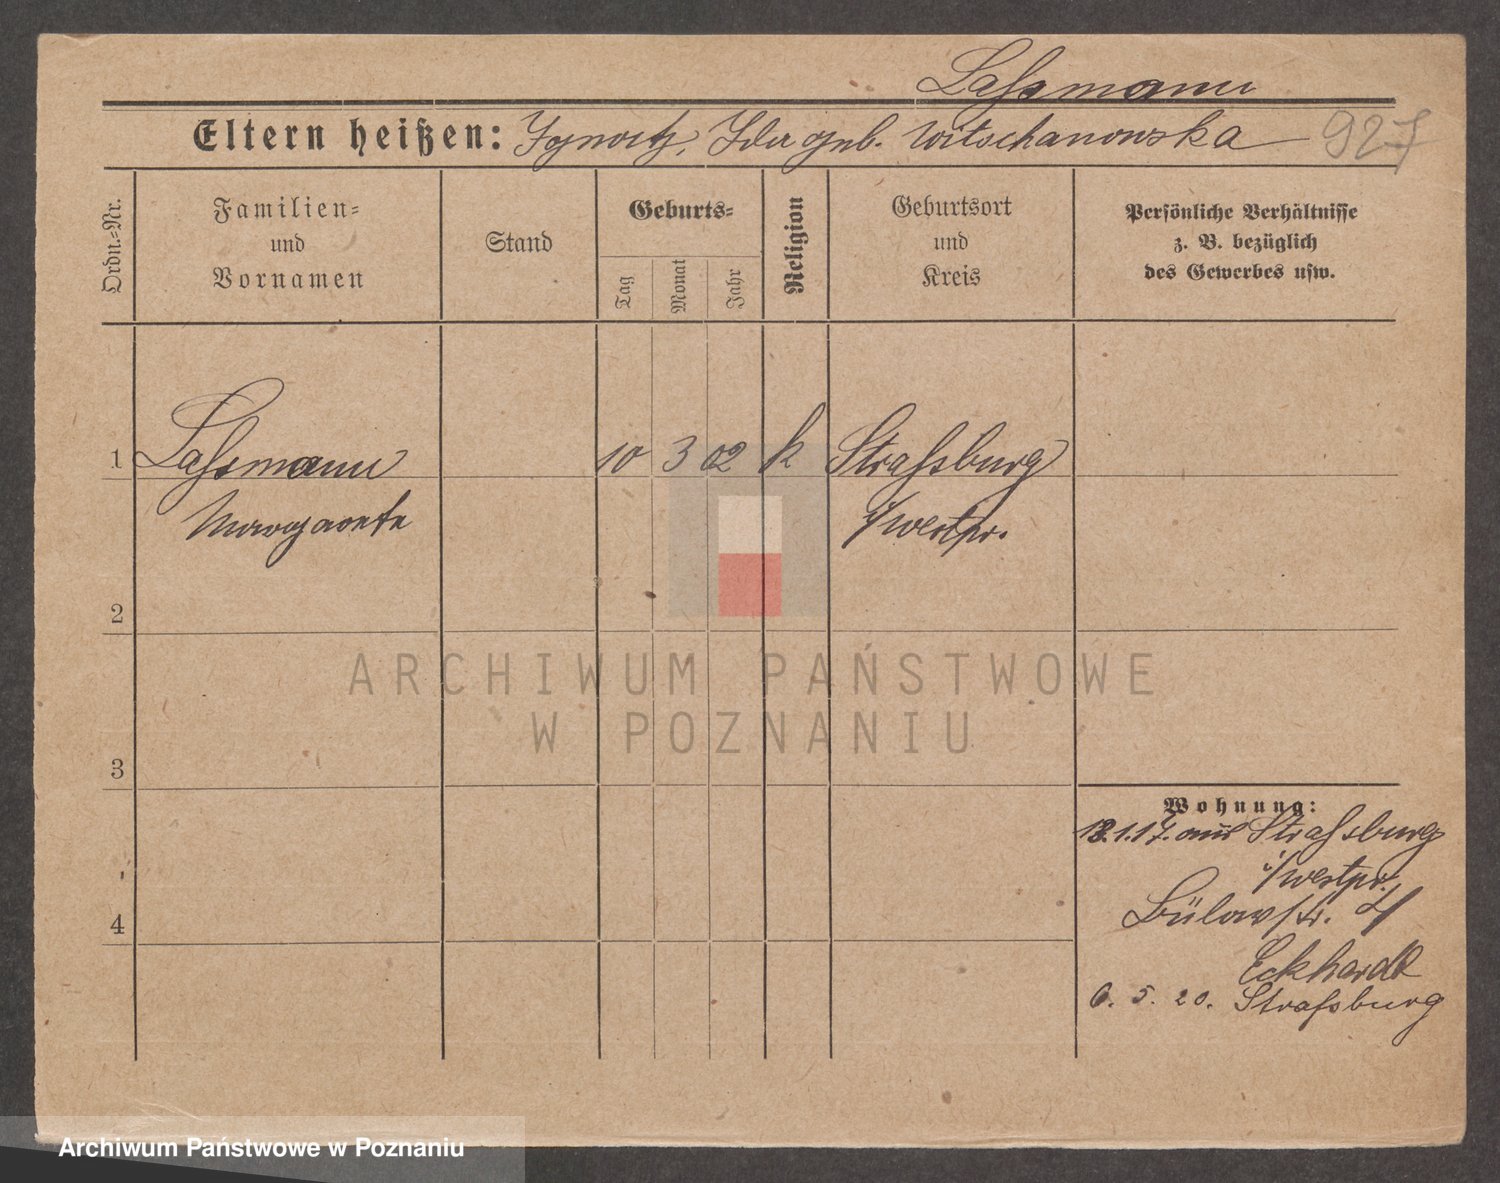 Laßmann
Eltern heißen: Ignatz, Ida geb. Witschanowska 927
Ordn.-Nr.
Familien-
und
Vornamen
Stand
Geburts-
Tag
Monat
Jahr
Religion
Geburtsort
und
Kreis
Persönliche Verhältnisse
z. B. bezüglich
des Gewerbes usw.
1 Laßmann 10 3 02 k Straßburg
Margarete i/Westpr.
2
ARCHIWUM PAŃSTWOWE
W POZNANIU
3
Wohnung:
18.1.17. aus Straßburg
i/Westpr.
4 Bülowstr. 4
Eckhardt
6. 5. 20. Straßburg
Archiwum Państwowe w Poznaniu